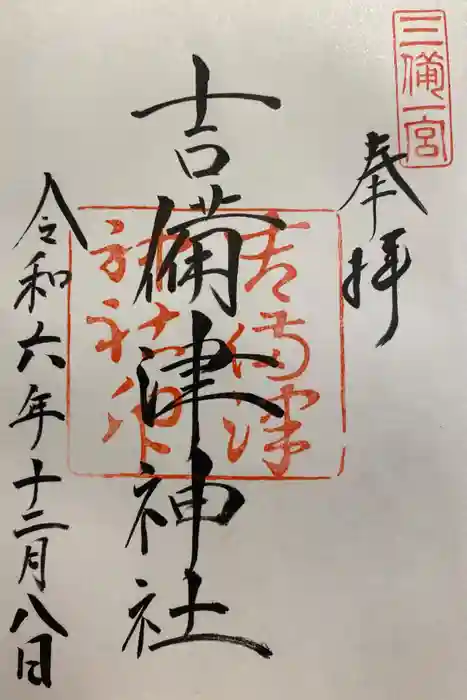 三備一宮
奉拝
吉備津神社
吉備津
神社
令和六年十二月八日